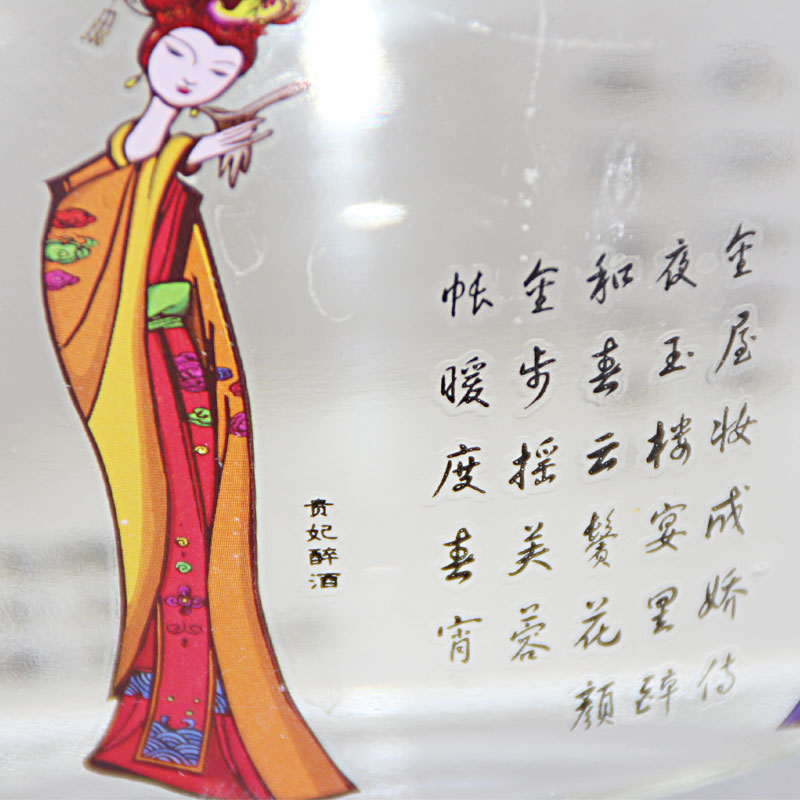 金屋妆成娇侍
夜玉楼宴里醉
和春云鬓花颜
金步摇芙蓉
帐暖度春宵
贵妃醉酒